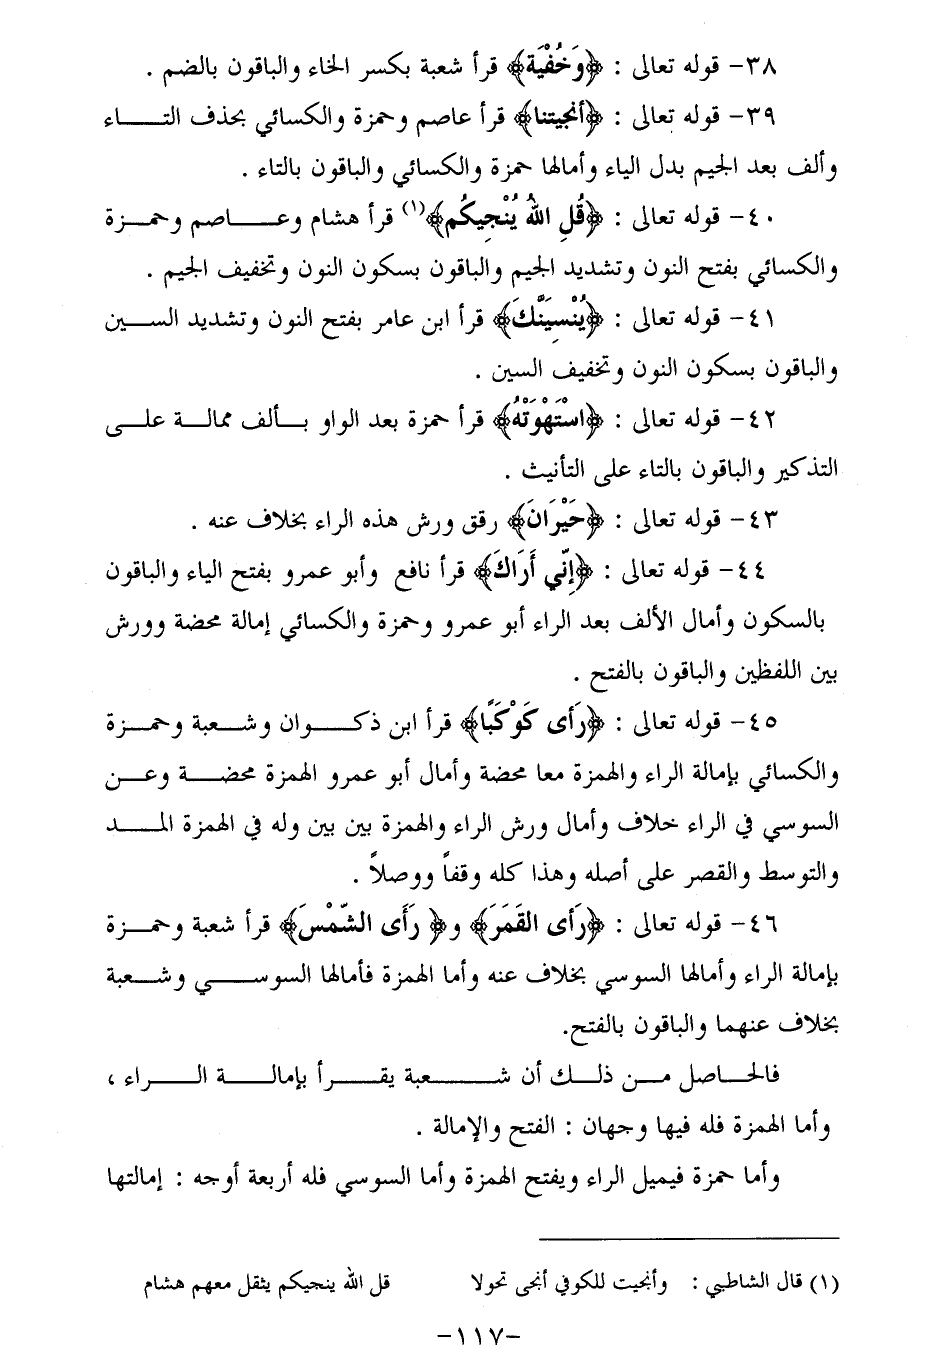 ٣٨- قوله تعالى : ﴿وَخُفْيَة﴾ قرأ شعبة بكسر الخاء والباقون بالضم .
٣٩- قوله تعالى : ﴿أنجيتنا﴾ قرأ عاصم وحمزة والكسائي بحذف التاء
وألف بعد الجيم بدل الياء وأمالها حمزة والكسائي والباقون بالتاء .
٤٠- قوله تعالى : ﴿قُلِ اللهُ يُنْجِيكُم﴾(١) قرأ هشام وعاصم وحمزة
والكسائي بفتح النون وتشديد الجيم والباقون بسكون النون وتخفيف الجيم .
٤١- قوله تعالى : ﴿يُنْسِيَنَّكَ﴾ قرأ ابن عامر بفتح النون وتشديد السين
والباقون بسكون النون وتخفيف السين .
٤٢- قوله تعالى : ﴿اسْتَهْوَتْهُ﴾ قرأ حمزة بعد الواو بألف ممالة على
التذكير والباقون بالتاء على التأنيث .
٤٣- قوله تعالى : ﴿حَيْرَانَ﴾ رقق ورش هذه الراء بخلاف عنه .
٤٤- قوله تعالى : ﴿إنِّي أَرَاكَ﴾ قرأ نافع وأبو عمرو بفتح الياء والباقون
بالسكون وأمال الألف بعد الراء أبو عمرو وحمزة والكسائي إمالة محضة وورش
بين اللفظين والباقون بالفتح .
٤٥- قوله تعالى : ﴿رَأى كَوْكَبًا﴾ قرأ ابن ذكوان وشعبة وحمزة
والكسائي بإمالة الراء والهمزة معا محضة وأمال أبو عمرو الهمزة محضة وعن
السوسي في الراء خلاف وأمال ورش الراء والهمزة بين بين وله في الهمزة المد
والتوسط والقصر على أصله وهذا كله وقفاً ووصلاً .
٤٦- قوله تعالى : ﴿رَأى القَمَرَ﴾ و﴿ رَأَى الشَّمْسَ﴾ قرأ شعبة وحمزة
بإمالة الراء وأمالها السوسي بخلاف عنه وأما الهمزة فأمالها السوسي وشعبة
بخلاف عنهما والباقون بالفتح.
فالحاصل من ذلك أن شعبة يقرأ بإمالة الراء ،
وأما الهمزة فله فيها وجهان : الفتح والإمالة .
وأما حمزة فيميل الراء ويفتح الهمزة وأما السوسي فله أربعة أوجه : إمالتها
(١) قال الشاطبي : وأنجيت للكوفي أنجى تحولا قل الله ينجيكم يثقل معهم هشام
-١١٧-